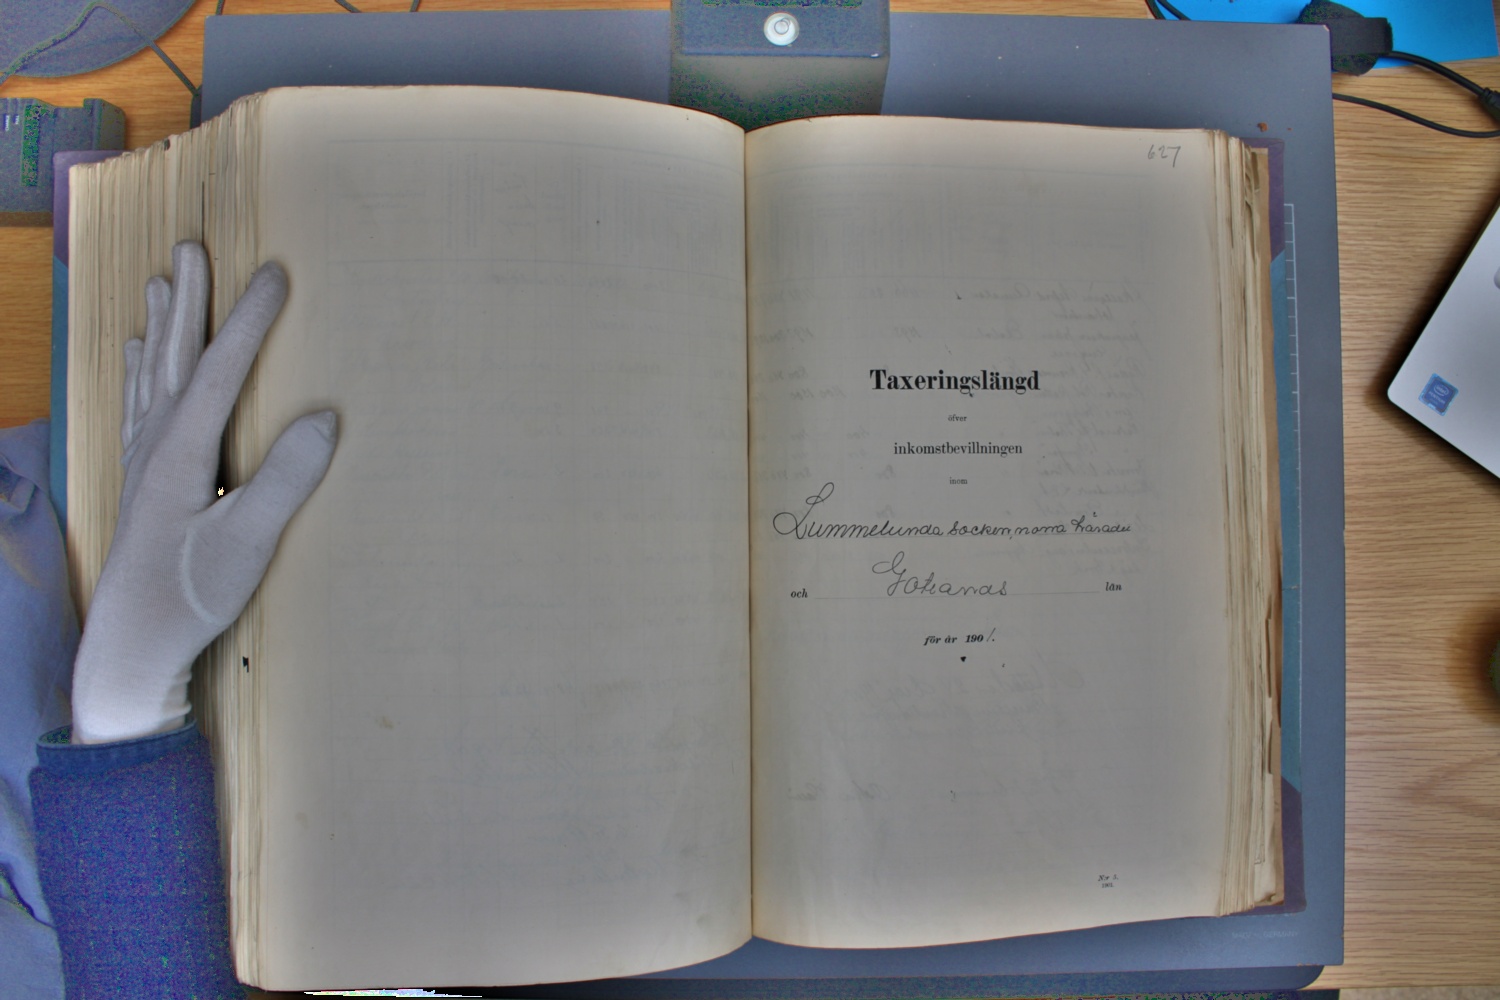 627
Taxeringslängd
öfver
inkomstbevillningen
inom
Lummelunda socken, norra häradet
och Gotlands län
för år 1901.
N:r 5.
1901.